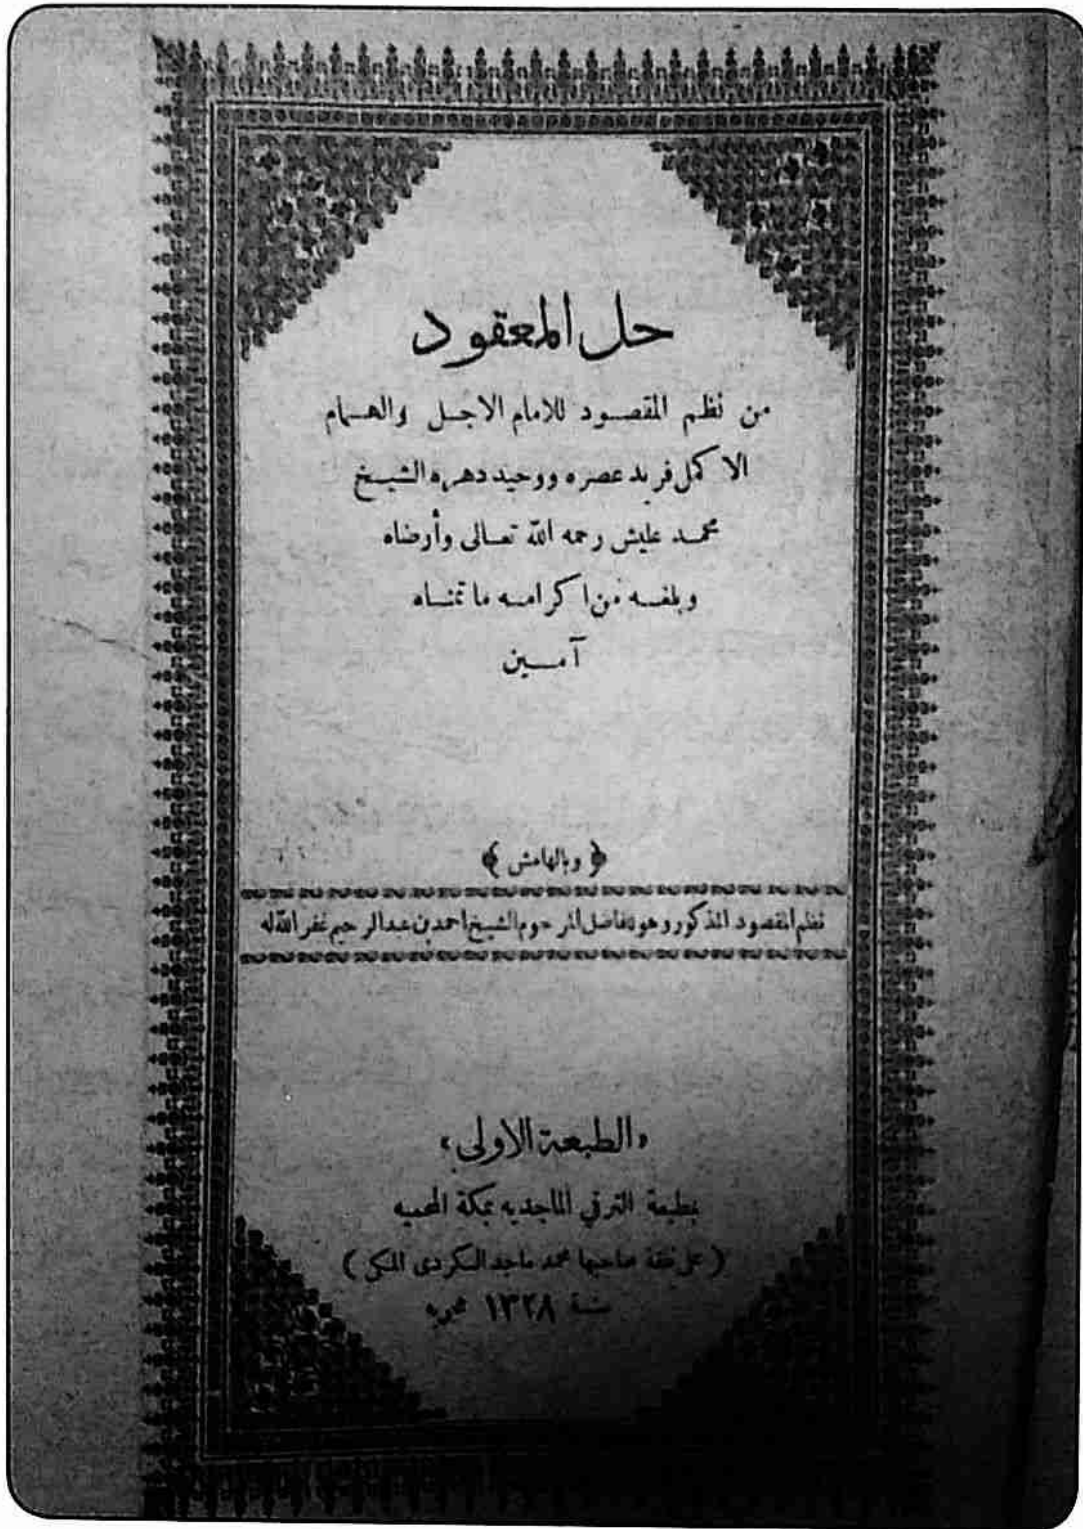 حل المعقود
من نظم المقصود للامام الاجل والهمام
الاكمل فريد عصره ووحيد دهره الشيخ
محمد عليش رحمه الله تعالى وأرضاه
وبلغه من اكرامه ما تمناه
آمين
﴿ وبالهامش ﴾
نظم المقصود المذكور وهو للفاضل المرحوم الشيخ احمد بن عبد الرحيم غفر الله له
«الطبعة الاولى»
بمطبعة الترقي الماجديه بمكة المحميه
(على نفقة صاحبها محمد ماجد الكردى المكى)
سنة ١٣٢٨ هجريه